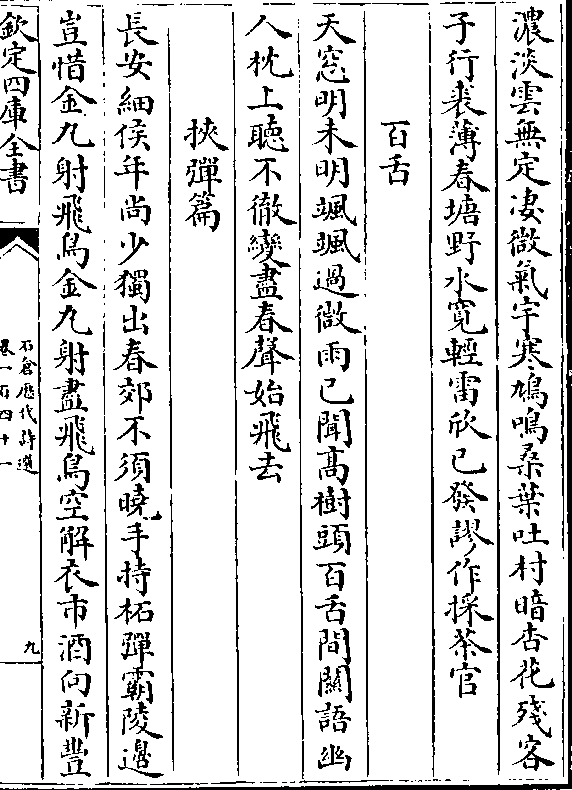 濃淡雲無定凄微氣宇寒鳩鳴桑葉吐村暗杏花殘客
子行裘薄春塘野水寛輕雷欣已發謬作採茶官
百舌
天窓明未明颯颯過微雨已聞髙樹頭百舌間關語幽
人枕上聽不徹變盡春聲始飛去
挾彈篇
長安細侯年尚少獨出春郊不須曉手持柘彈霸陵邊
豈惜金丸射飛鳥金丸射盡飛鳥空解衣市酒向新豐
欽定四庫全書
石倉歴代詩選
卷一百四十一
九